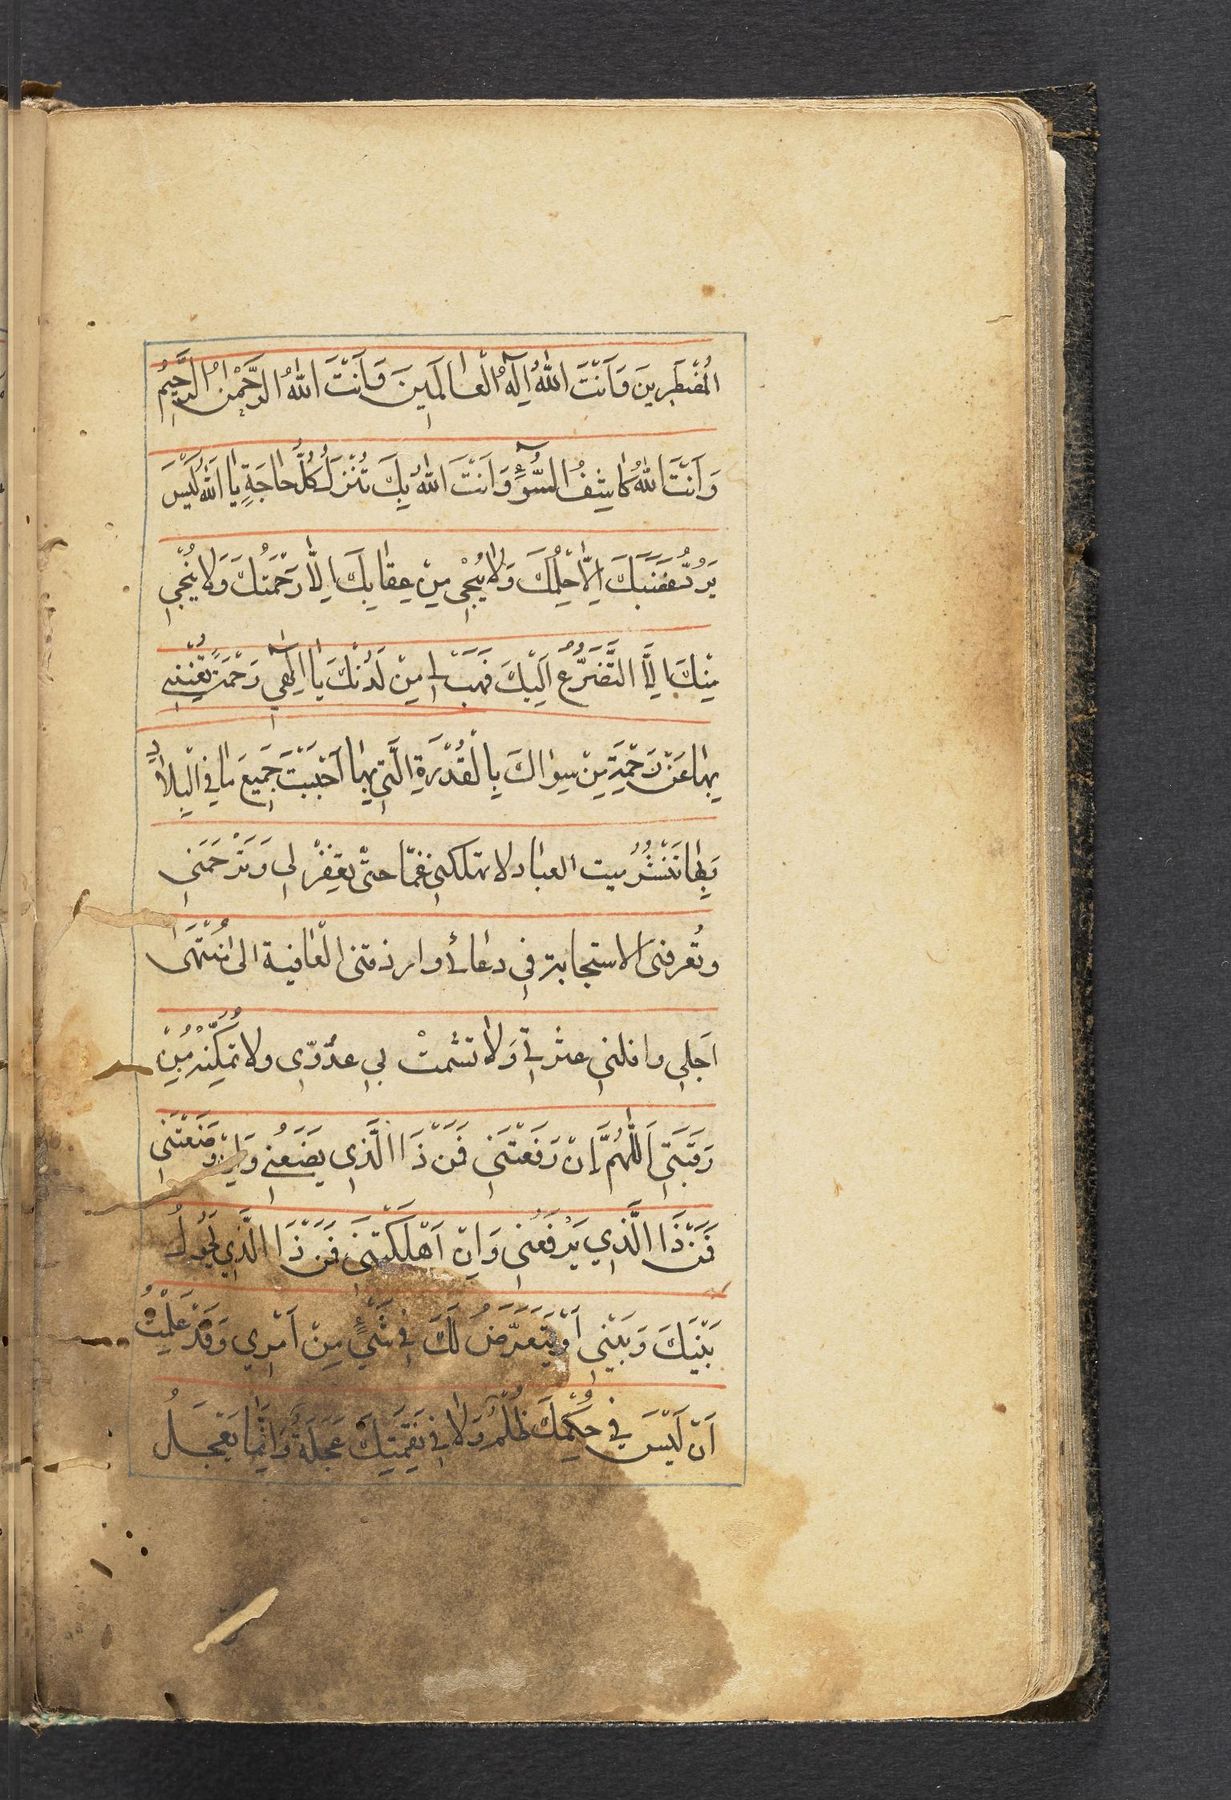 الْمُضْطَرِينَ وَاَنْتَ اللهُ اِلَهُ الْعَالَمِينَ وَاَنْتَ اللهُ الرَّحْمٰنُ الرَّحِيمُ
وَاَنْتَ اللهُ كَاشِفُ السُّوءِ وَاَنْتَ اللهُ بِكَ تُنْزَلُ كُلُّ حَاجَةٍ يَا اَللهُ لَيْسَ
يَرُدُّ غَضَبَكَ اِلَّا حِلْمُكَ وَلَا يُنْجِي مِنْ عِقَابِكَ اِلَّا رَحْمَتُكَ وَلَا يُنْجِي
مِنْكَ اِلَّا التَّضَرُّعُ اِلَيْكَ فَهَبْ لِي مِنْ لَدُنْكَ يَا اِلٰهِي رَحْمَةً تُغْنِينِي
بِهَا عَنْ رَحْمَةِ مَنْ سِوَاكَ بِالْقُدْرَةِ الَّتِي بِهَا اَحْيَيْتَ جَمِيعَ مَا فِي الْبِلَادِ
وَبِهَا تَنْشُرُ مَيت العباد لا تهلكني غمّا حتّى تغفِرْ لي وَتَرْحَمَنِي
وتُعرفنى الاستجابة فِي دعائى وارزقنى الْعَافية الى مُنْتَهَى
اَجَلِي واقلني عثرتى وَلا تشمتْ بي عدُوّى ولا تُمَكِّنْهُ مِنْ
رَقَبَتِي اَللّٰهُمَّ اِنْ رَفَعْتَنِي فَمَنْ ذَا الَّذِي يَضَعُنِي وَاِنْ وَضَعْتَنِي
فَمَنْ ذَا الَّذِي يَرْفَعُنِي وَاِنْ اَهْلَكْتَنِي فَمَنْ ذَا الَّذِي يَحُولُ
بَيْنَكَ وَبَيْنِي اَوْ يَتَعَرَّضُ لَكَ فِي شَيْءٍ مِنْ اَمْرِي وَقَدْ عَلِمْتُ
اَنْ لَيْسَ فِي حُكْمِكَ ظُلْمٌ وَلَا فِي نَقِمَتِكَ عَجَلَةٌ وَاِنَّمَا يَعْجَلُ